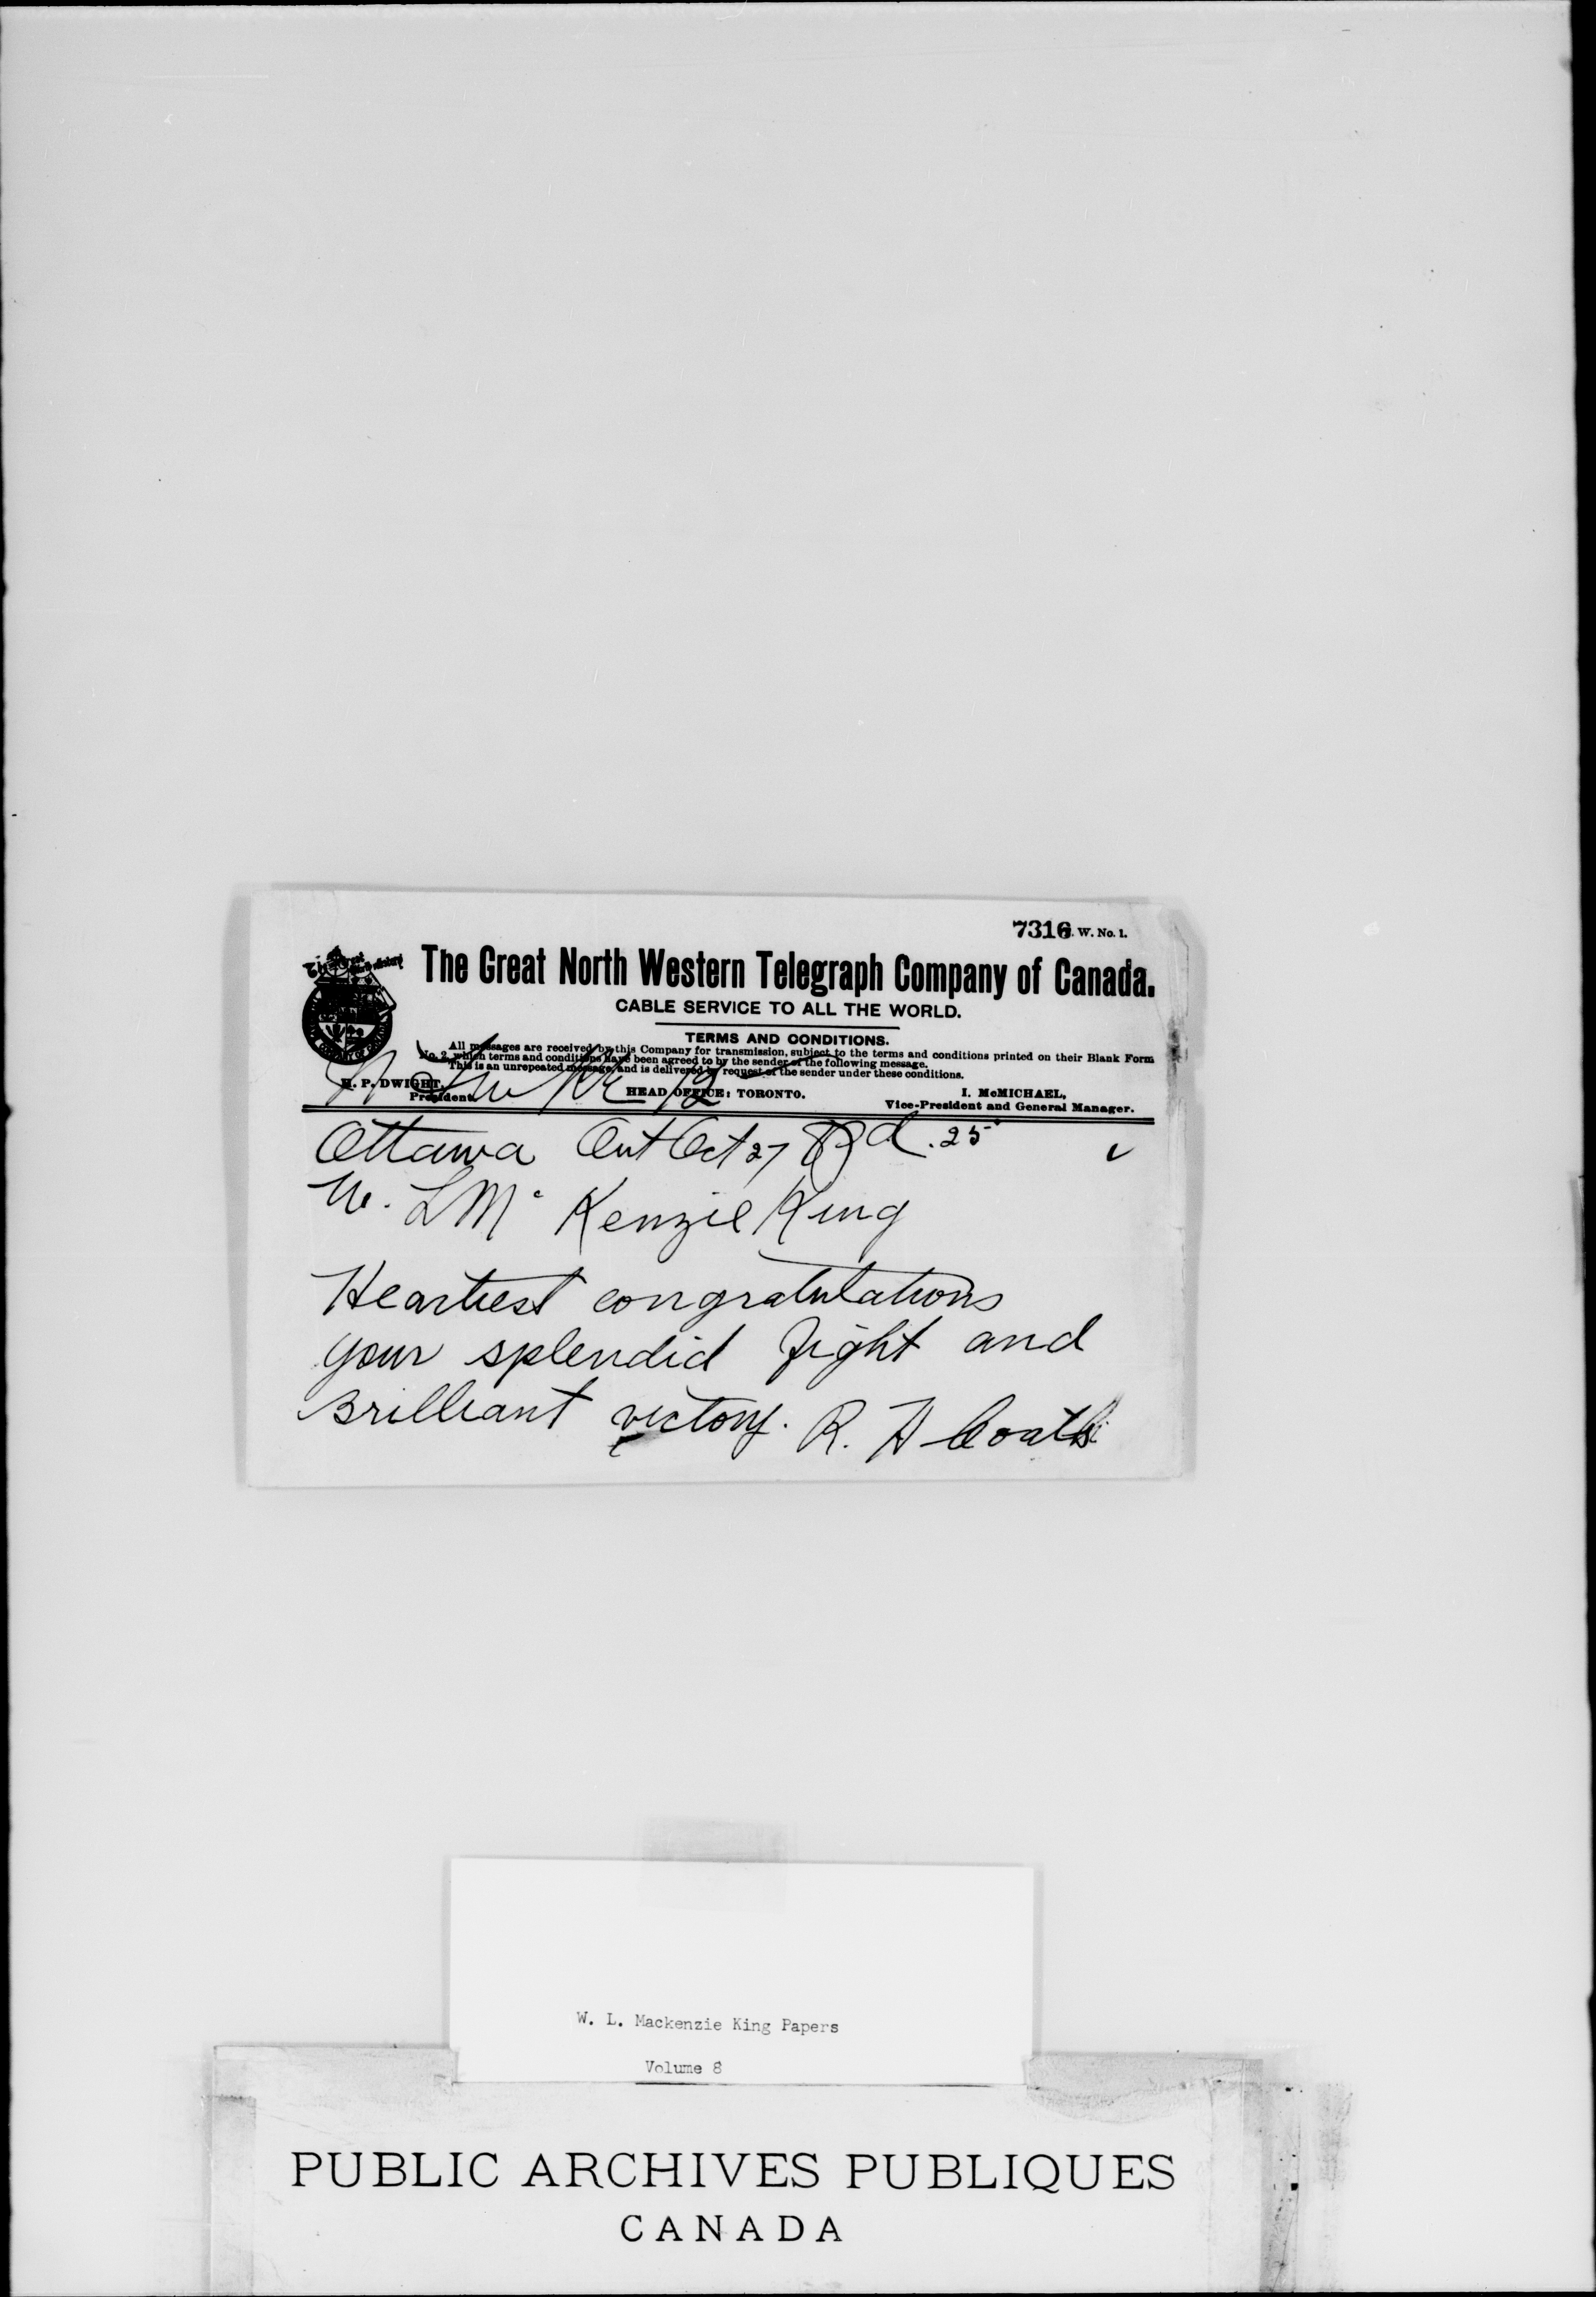 7316 W. No. 1.
The Great North Western Telegraph Company of Canada.
CABLE SERVICE TO ALL THE WORLD.
TERMS AND CONDITIONS.
All messages are received by this Company for transmission, subject to the terms and conditions printed on their Blank Form
No. 2, which terms and conditions have been agreed to by the sender of the following message.
This is an unrepeated message, and is delivered by request of the sender under these conditions.
H. P. DWIGHT, President.
HEAD OFFICE: TORONTO.
I. McMICHAEL, Vice-President and General Manager.
Ottawa Ont Oct 27 25
W. L Mc Kenzie King
Heartiest congratulations
your splendid fight and
Brilliant victory. R. H Coats
W. L. Mackenzie King Papers
Volume 8
PUBLIC ARCHIVES PUBLIQUES
CANADA